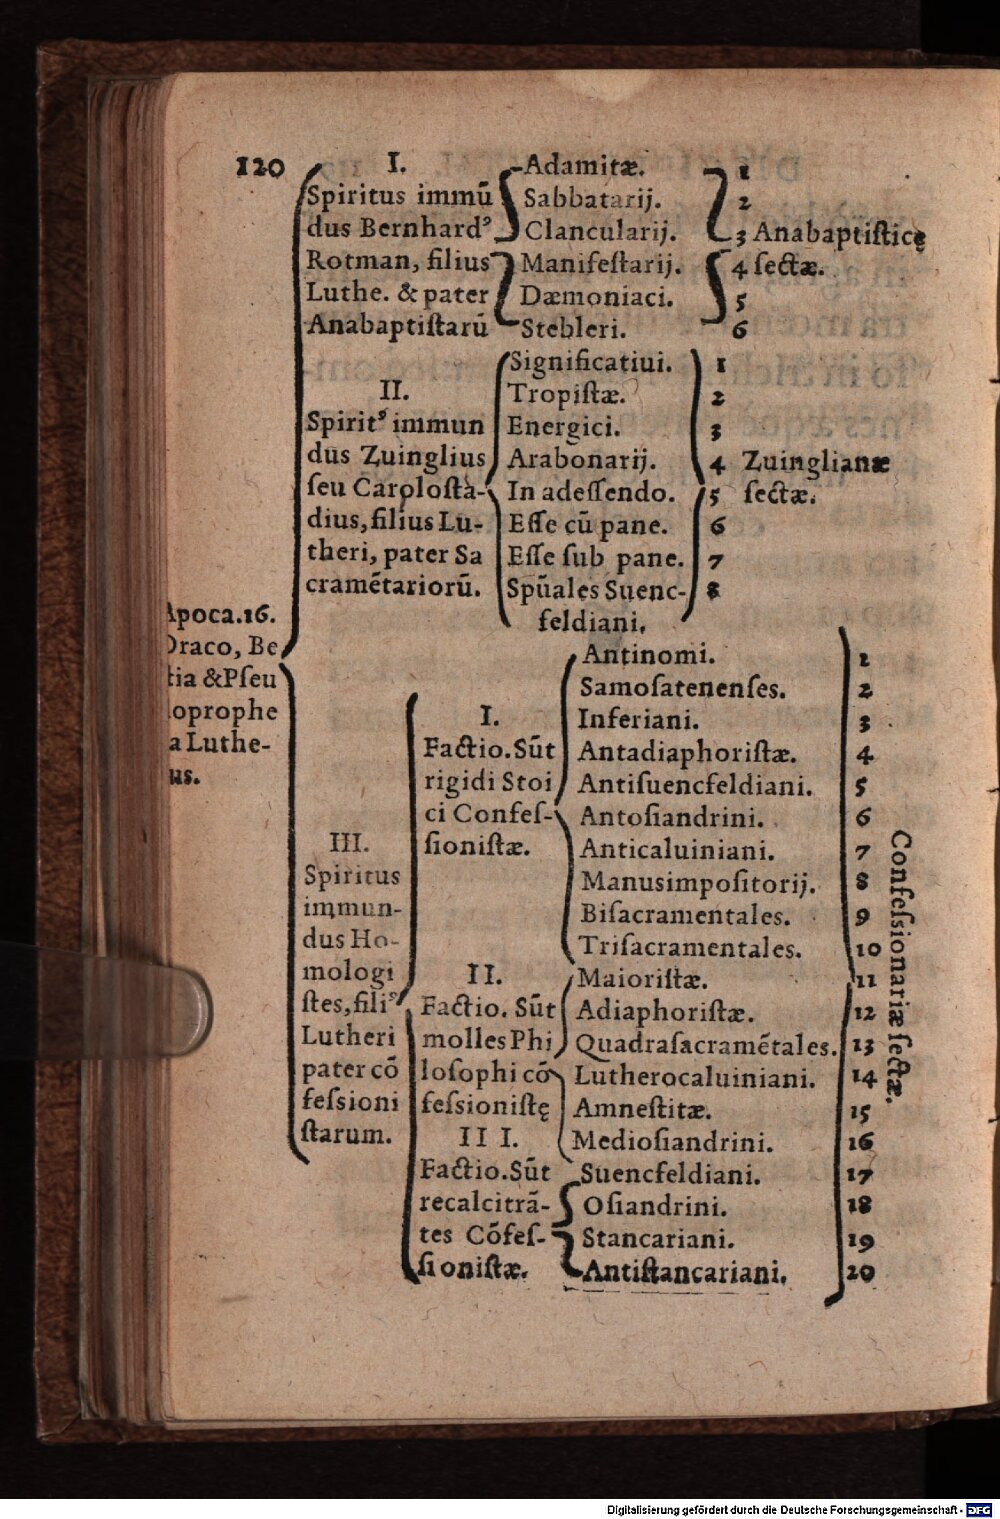 120
I.
Spiritus immū
dus Bernhardꝰ
Rotman, filius
Luthe. & pater
Anabaptiſtarū
Adamitæ. 1
Sabbatarij. 2
Clancularij. 3
Manifeſtarij. 4
Dæmoniaci. 5
Stebleri. 6
Anabaptiſticę
ſectæ.
II.
Spiritꝰ immun
dus Zuinglius
ſeu Caroloſta-
dius, filius Lu-
theri, pater Sa
cramētariorū.
Significatiui. 1
Tropiſtæ. 2
Energici. 3
Arabonarij. 4
In adeſſendo. 5
Eſſe cū pane. 6
Eſſe ſub pane. 7
Spūales Suenc- 8
feldiani.
Zuinglianæ
ſectæ.
Apoca.16.
Draco, Be
tia & Pſeu
oprophe
a Luthe-
us.
III.
Spiritus
immun-
dus Ho-
mologi
ſtes, filiꝰ
Lutheri
pater cō
feſsioni
ſtarum.
I.
Factio. Sūt
rigidi Stoi
ci Confeſ-
ſioniſtæ.
Antinomi. 1
Samoſatenenſes. 2
Inferiani. 3
Antadiaphoriſtæ. 4
Antiſuencfeldiani. 5
Antoſiandrini. 6
Anticaluiniani. 7
Manusimpoſitorij. 8
Biſacramentales. 9
Triſacramentales. 10
II.
Factio. Sūt
molles Phi
loſophi cō
feſsioniſtę
Maioriſtæ. 11
Adiaphoriſtæ. 12
Quadraſacramētales. 13
Lutherocaluiniani. 14
Amneſtitæ. 15
Medioſiandrini. 16
III.
Factio. Sūt
recalcitrā-
tes Cōfeſ-
ſioniſtæ.
Suencfeldiani. 17
Oſiandrini. 18
Stancariani. 19
Antiſtancariani. 20
Confeſsionariæ ſectæ.
Digitalisierung gefördert durch die Deutsche Forschungsgemeinschaft - DFG